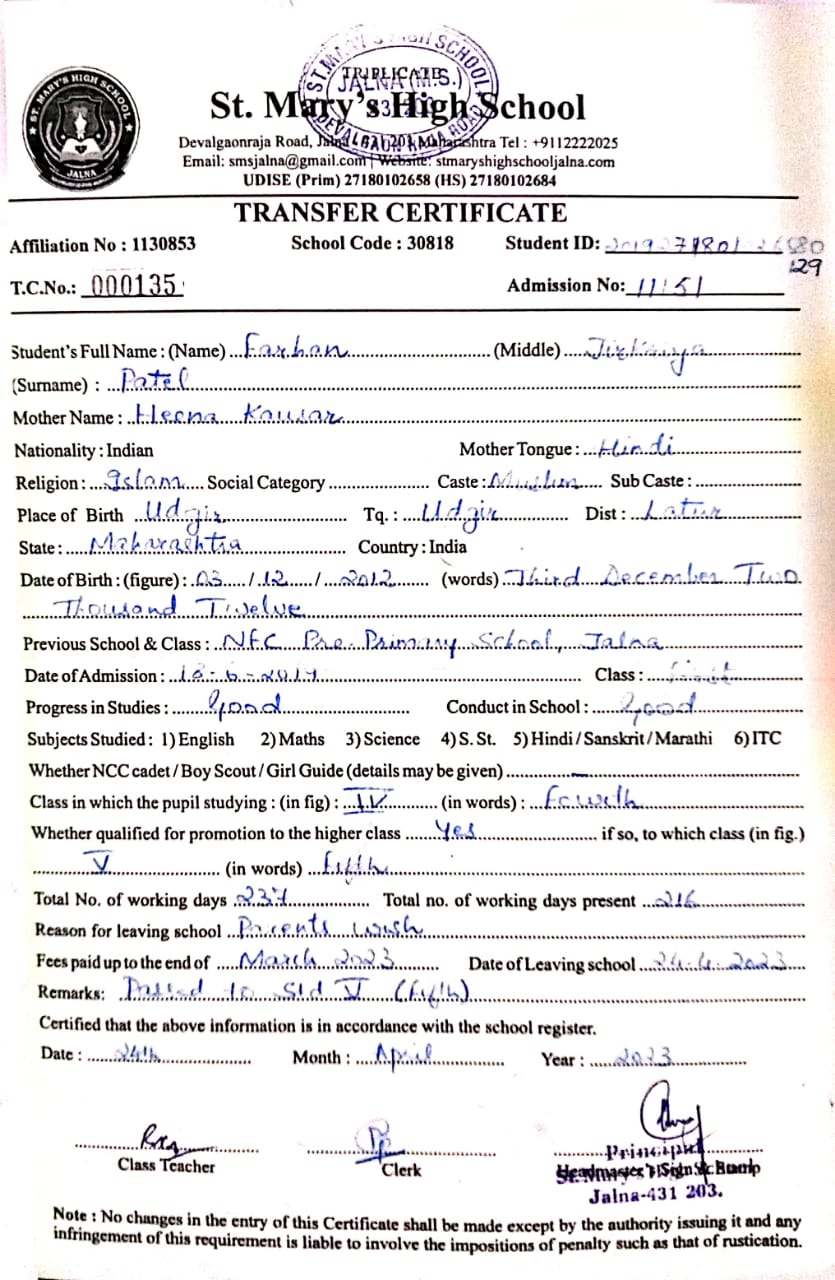 ST. MARY'S HIGH SCHOOL
JALNA
ST. MARY'S HIGH SCHOOL
TRIPLICATE
JALNA (M.S.)
DEVALGAON RAJA ROAD
St. Mary's High School
Devalgaonraja Road, Jalna 431 203 Maharashtra Tel : +9112222025
Email: smsjalna@gmail.com | Website: stmaryshighschooljalna.com
UDISE (Prim) 27180102658 (HS) 27180102684
TRANSFER CERTIFICATE
Affiliation No : 1130853 School Code : 30818 Student ID:
129
T.C.No.: 000135 Admission No: 11151
Student's Full Name : (Name) Farhan (Middle)
(Surname) : Patel
Mother Name : Heena Kausar
Nationality : Indian Mother Tongue : Hindi
Religion : Islam Social Category Caste : Muslim Sub Caste :
Place of Birth Udgir Tq. : Udgir Dist : Latur
State : Maharashtra Country : India
Date of Birth : (figure) : 03 / 12 / 2012 (words) Third December Two
Thousand Twelve
Previous School & Class : NFC Pre-Primary School, Jalna
Date of Admission : Class :
Progress in Studies : Good Conduct in School : Good
Subjects Studied : 1) English 2) Maths 3) Science 4) S. St. 5) Hindi / Sanskrit / Marathi 6) ITC
Whether NCC cadet / Boy Scout / Girl Guide (details may be given) —
Class in which the pupil studying : (in fig) : IV (in words) : Fourth
Whether qualified for promotion to the higher class Yes if so, to which class (in fig.)
V (in words) Fifth
Total No. of working days 237 Total no. of working days present 216
Reason for leaving school Parents wish
Fees paid up to the end of March 2023 Date of Leaving school 24-4-2023
Remarks: Passed to Std V (Fifth)
Certified that the above information is in accordance with the school register.
Date : 24th Month : April Year : 2023
Class Teacher Clerk Principal
Headmaster's Sign & Stamp
Jalna-431 203.
Note : No changes in the entry of this Certificate shall be made except by the authority issuing it and any
infringement of this requirement is liable to involve the impositions of penalty such as that of rustication.